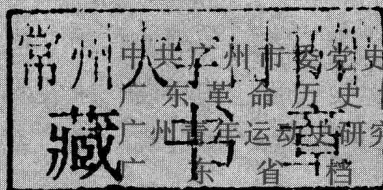 常州大学
藏书章
中共广州市委党史
广东革命历史
广州青年运动史研究
广东省档